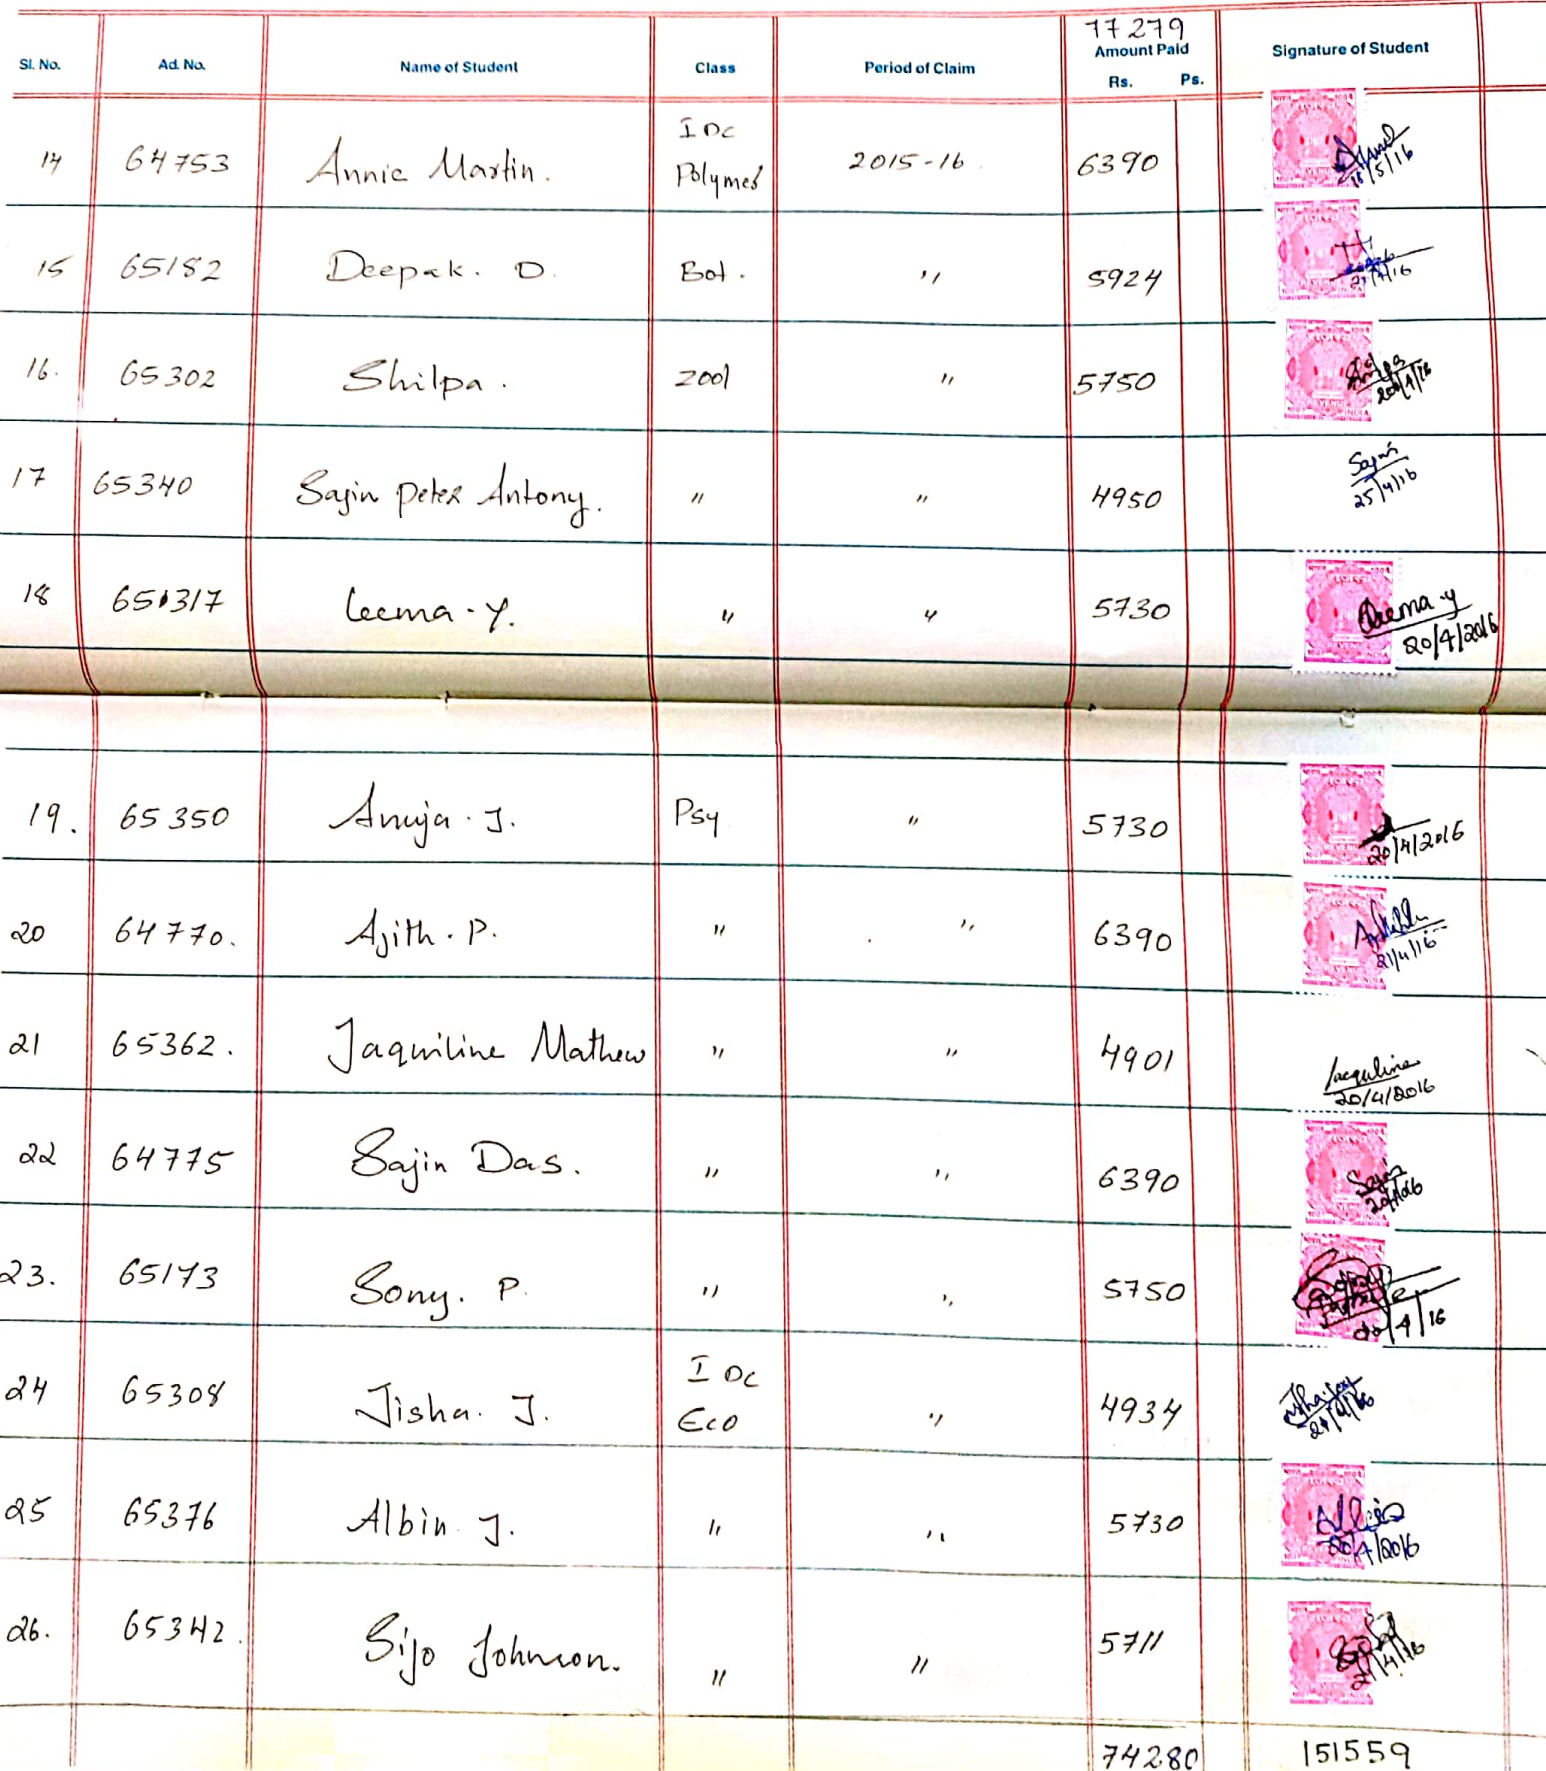 77279
Sl. No. Ad. No. Name of Student Class Period of Claim Amount Paid Signature of Student
Rs. Ps.
I DC
14 64753 Annie Martin. Polymer 2015-16 6390
18/5/16
15 65182 Deepak. D. Bot. " 5924
16. 65302 Shilpa. Zool " 5750
Shilpa
20/4/16
17 65340 Sajin Peter Antony. " " 4950
Sajin
25/4/16
18 65317 Leema. Y. " " 5730
Leema. Y
20/4/2016
19. 65350 Anuja. J. Psy " 5730
20/4/2016
20 64770. Ajith. P. " " 6390
21/4/16
21 65362. Jaquiline Mathew " " 4901
Jacquline
20/4/2016
22 64775 Sajin Das. " " 6390
Sajin
23. 65173 Sony. P. " " 5750
20/4/16
I DC
24 65308 Jisha. J. Eco " 4934
25 65376 Albin J. " " 5730
Albin
20/4/2016
26. 65342. Sijo Johnson. " " 5711
21/4/16
74280 151559